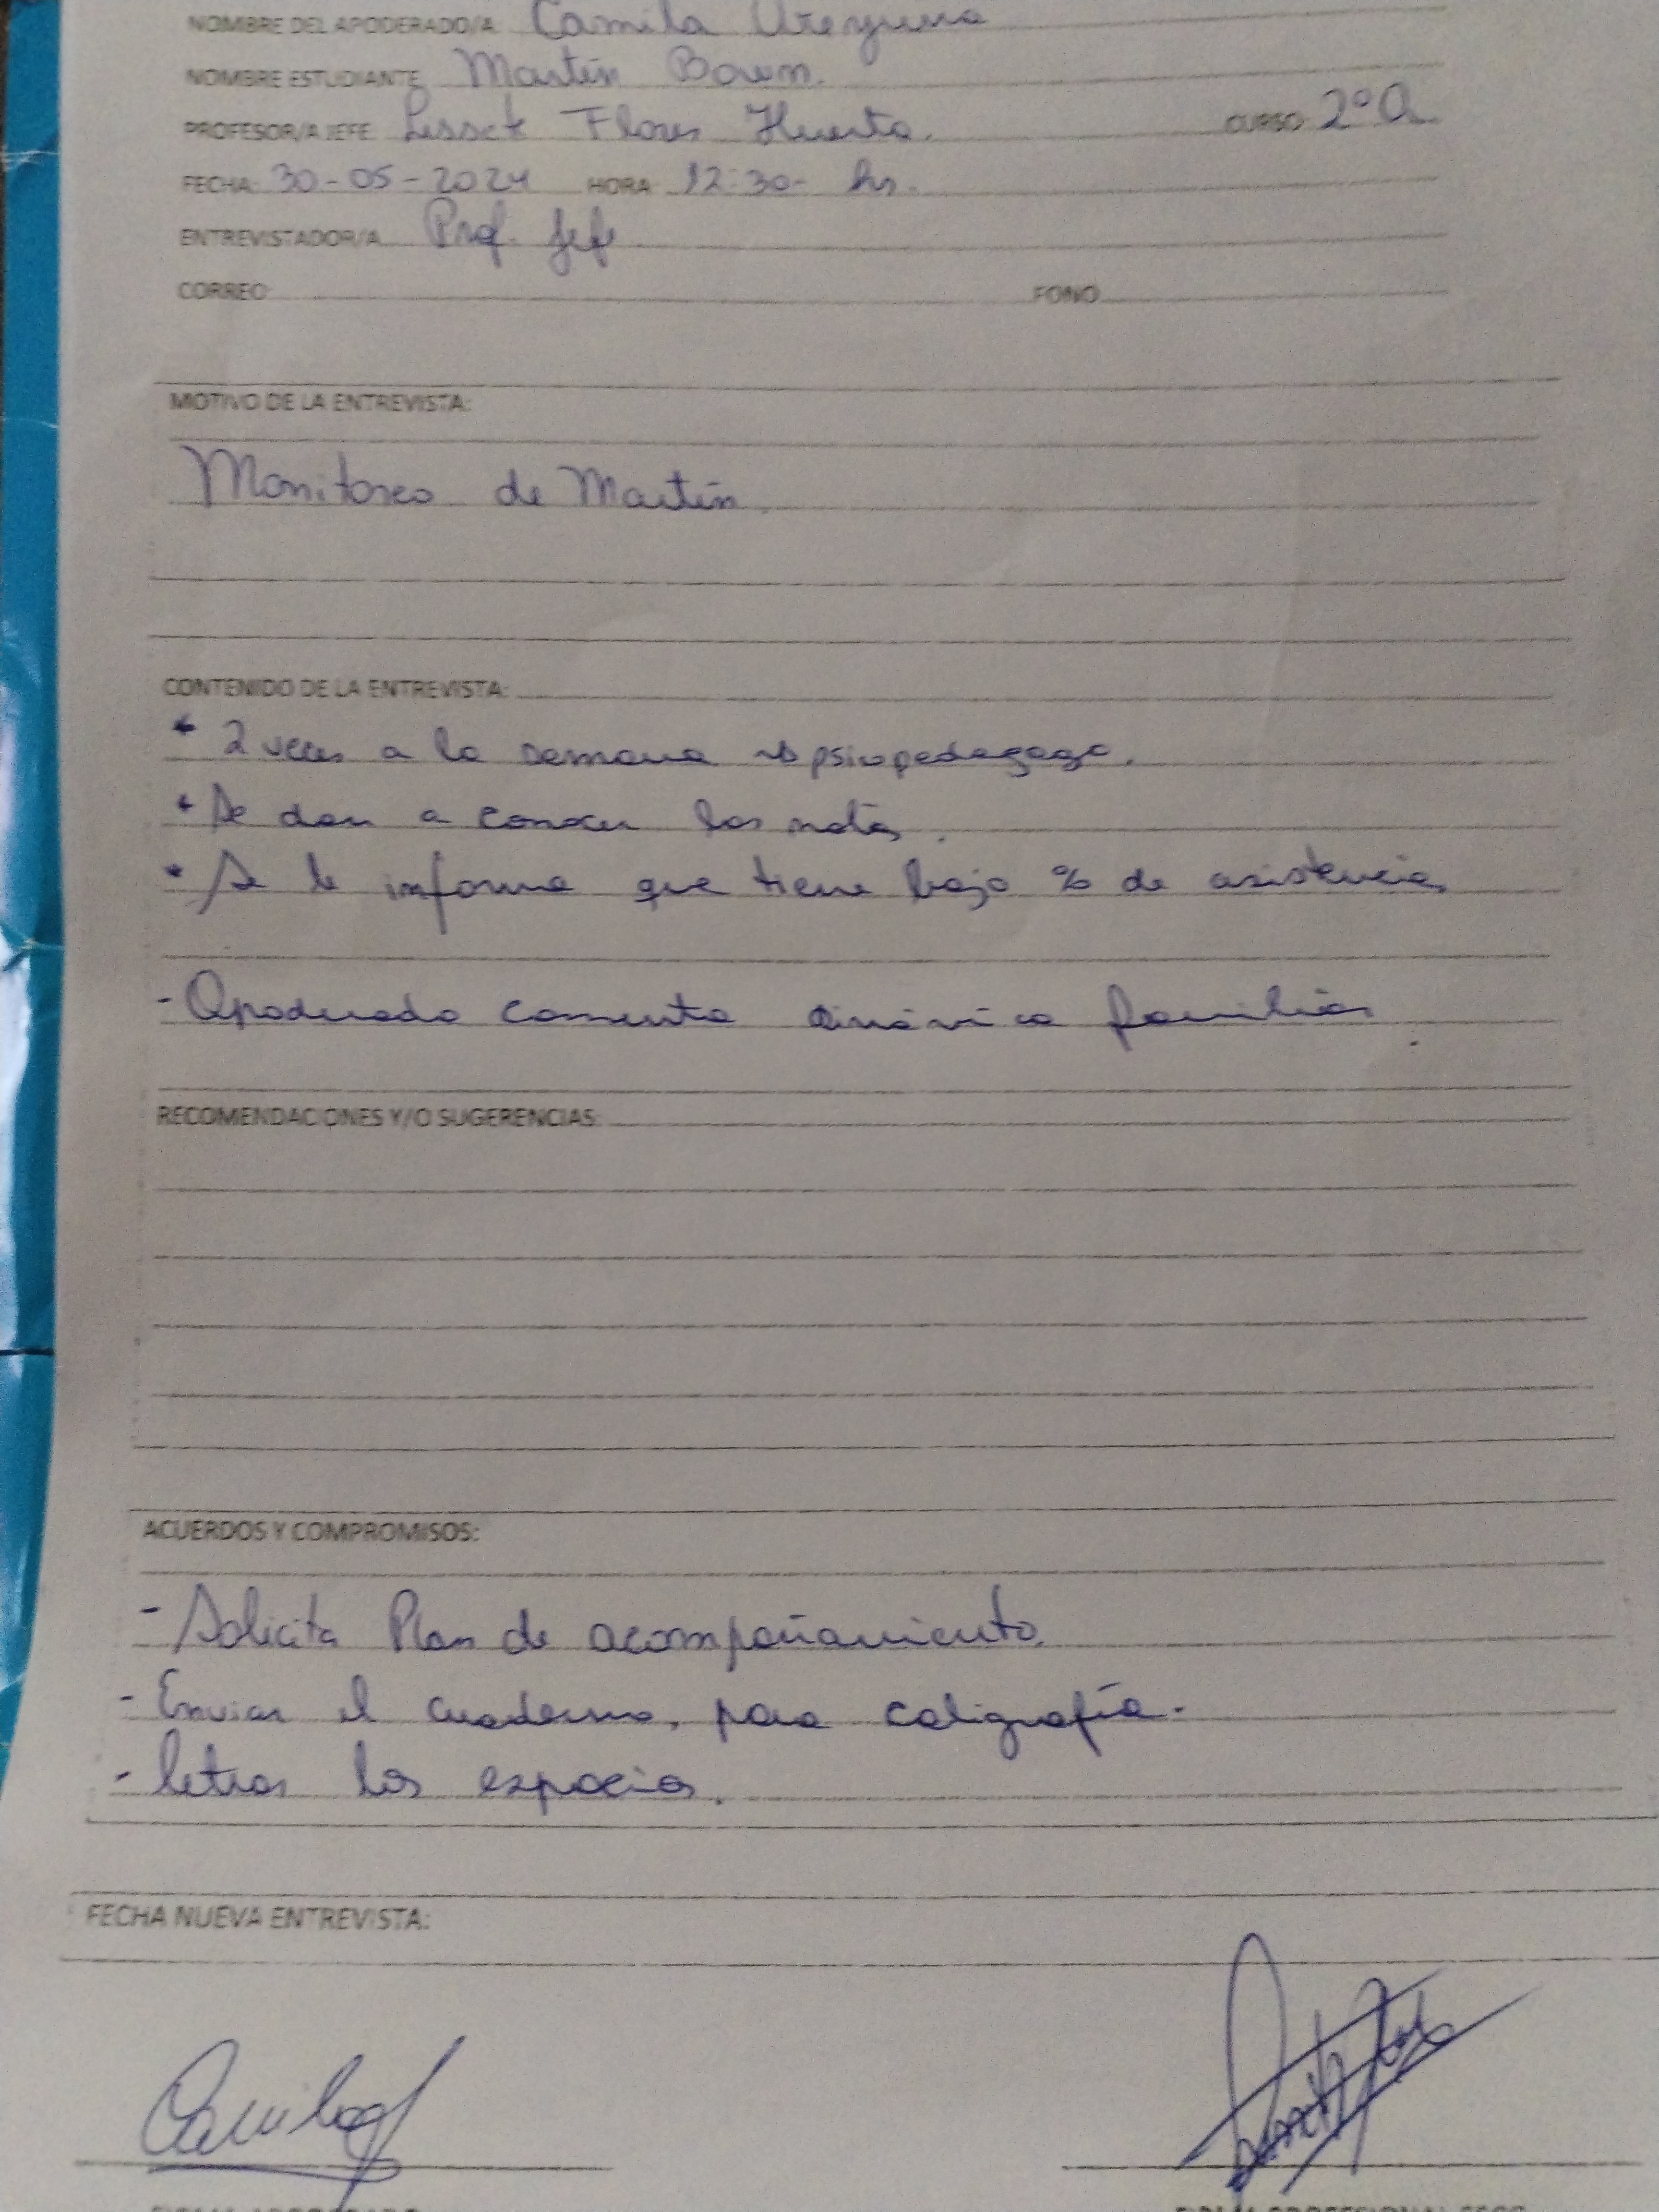 NOMBRE DEL APODERADO/A: Camila
NOMBRE ESTUDIANTE Martín
PROFESOR/A JEFE Lissett Flores Huerta. CURSO: 2°A
FECHA: 30-05-2024 HORA 12:30- hs.
ENTREVISTADOR/A Prof. Jefe
CORREO FONO
MOTIVO DE LA ENTREVISTA:
Monitoreo de Martín.
CONTENIDO DE LA ENTREVISTA:
* 2 veces a la semana psicopedagoga.
* Se dan a conocer las notas.
* Se le informa que tiene bajo % de asistencia
- Apoderada comenta dinámica familiar
RECOMENDACIONES Y/O SUGERENCIAS:
ACUERDOS Y COMPROMISOS:
- Solicita Plan de acompañamiento
- Enviar el cuaderno, para caligrafía.
- letras los espacios.
FECHA NUEVA ENTREVISTA: